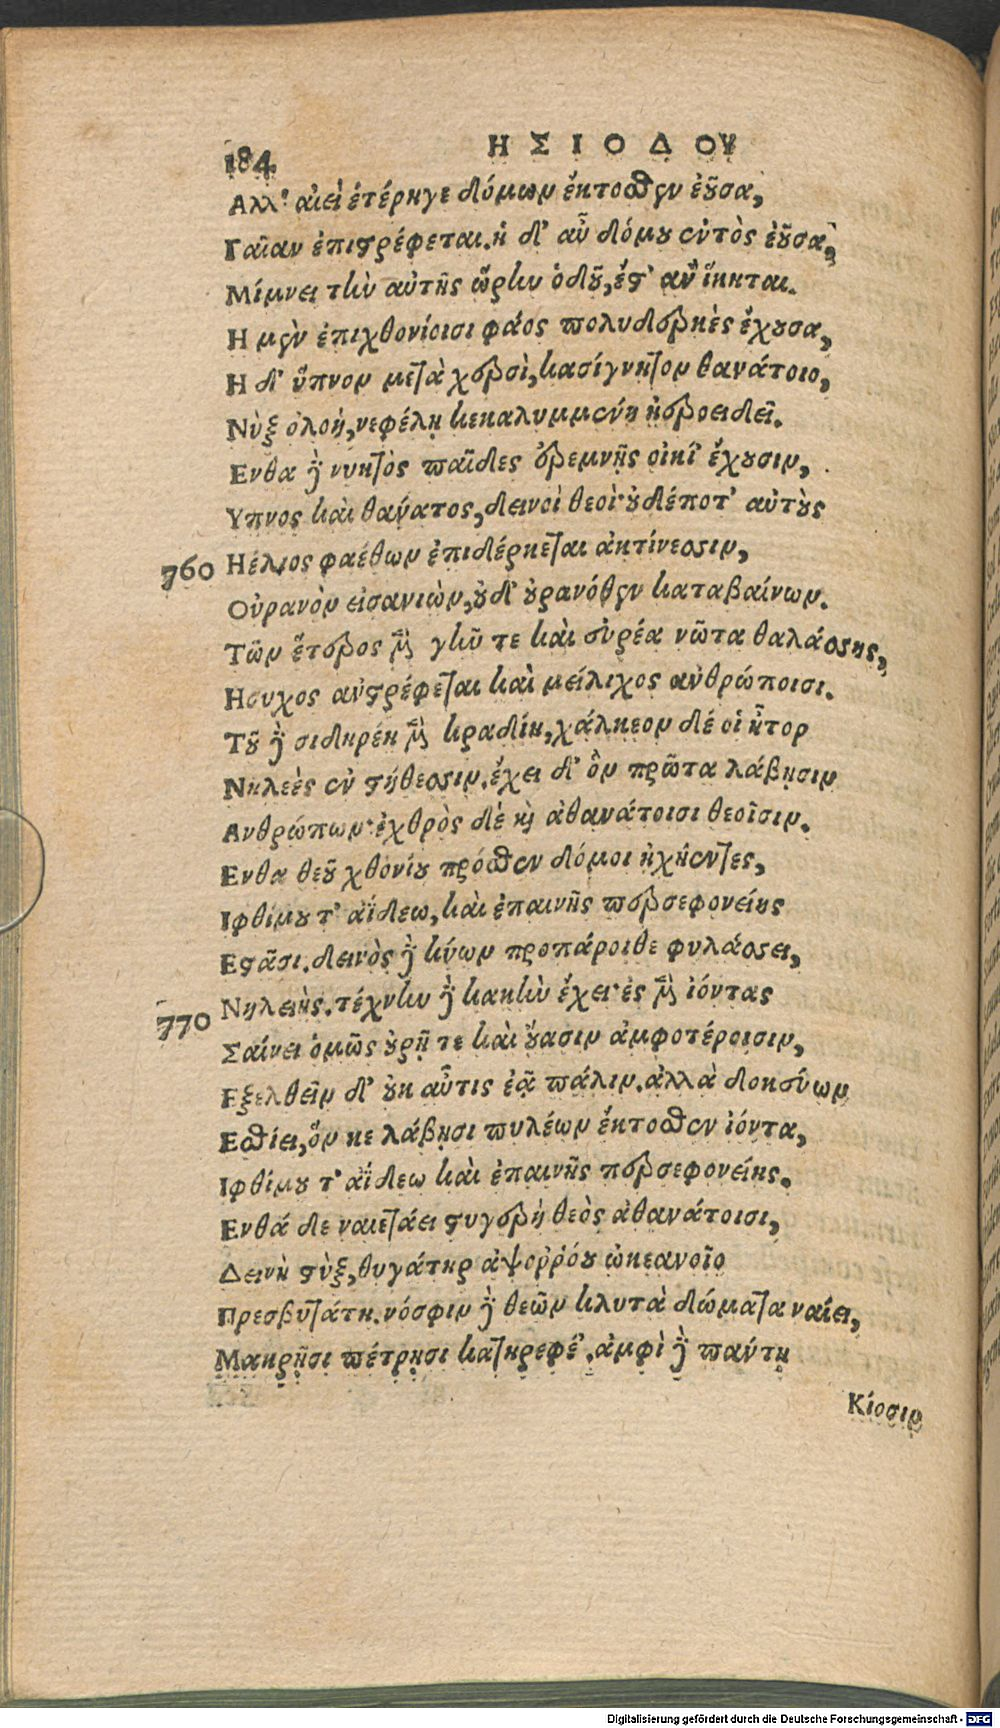 184 ΗΣΙΟΔΟΥ
Αλλ' αἰεὶ ἑτέρηγε δόμων ἔκτοσθεν ἐοῦσα,
Γαῖαν ἐπιστρέφεται. ἡ δ' αὖ δόμου ἐντὸς ἐοῦσα,
Μίμνει τὴν αὐτῆς ὥρην ὁδοῦ, ἔστ' ἂν ἵκηται.
Η μὲν ἐπιχθονίοισι φάος πολυδερκὲς ἔχουσα,
Η δ' ὕπνον μετὰ χερσὶ, κασίγνητον θανάτοιο,
Νὺξ ὀλοή, νεφέλῃ κεκαλυμμένη ἠεροειδεῖ.
Ενθα δὲ νυκτὸς παῖδες ἐρεμνῆς οἰκί' ἔχουσιν,
Υπνος καὶ θάνατος, δεινοὶ θεοί· οὐδέποτ' αὐτοὺς
760 Ηέλιος φαέθων ἐπιδέρκεται ἀκτίνεσσιν,
Οὐρανὸν εἰσανιὼν, οὐδ' οὐρανόθεν καταβαίνων.
Τῶν ἕτερος μὲν γῆν τε καὶ εὐρέα νῶτα θαλάσσης,
Ησυχος ἀνστρέφεται καὶ μείλιχος ἀνθρώποισι.
Τοῦ δὲ σιδηρέη μὲν κραδίη, χάλκεον δέ οἱ ἦτορ
Νηλεὲς ἐν στήθεσσιν. ἔχει δ' ὃν πρῶτα λάβῃσιν
Ανθρώπων· ἐχθρὸς δὲ καὶ ἀθανάτοισι θεοῖσιν.
Ενθα θεοῦ χθονίου πρόσθεν δόμοι ἠχήεντες,
Ιφθίμου τ' ἀΐδεω, καὶ ἐπαινῆς περσεφονείης
Εστᾶσι. δεινὸς δὲ κύων προπάροιθε φυλάσσει,
770 Νηλειής. τέχνην δὲ κακὴν ἔχει· ἐς μὲν ἰόντας
Σαίνει ὁμῶς οὐρῇ τε καὶ οὔασιν ἀμφοτέροισιν,
Εξελθεῖν δ' οὐκ αὖτις ἐᾷ πάλιν. ἀλλὰ δοκεύων
Εσθίει, ὅν κε λάβῃσι πυλέων ἔκτοσθεν ἰόντα,
Ιφθίμου τ' ἀΐδεω καὶ ἐπαινῆς περσεφονείης.
Ενθά δε ναιετάει στυγερὴ θεὸς ἀθανάτοισι,
Δεινὴ στὺξ, θυγάτηρ ἀψοῤῥόου ὠκεανοῖο
Πρεσβυτάτη. νόσφιν δὲ θεῶν κλυτὰ δώματα ναίει,
Μακρῇσι πέτρῃσι κατηρεφέ'. ἀμφὶ δὲ πάντη
Κίοσιν
Digitalisierung gefördert durch die Deutsche Forschungsgemeinschaft - DFG